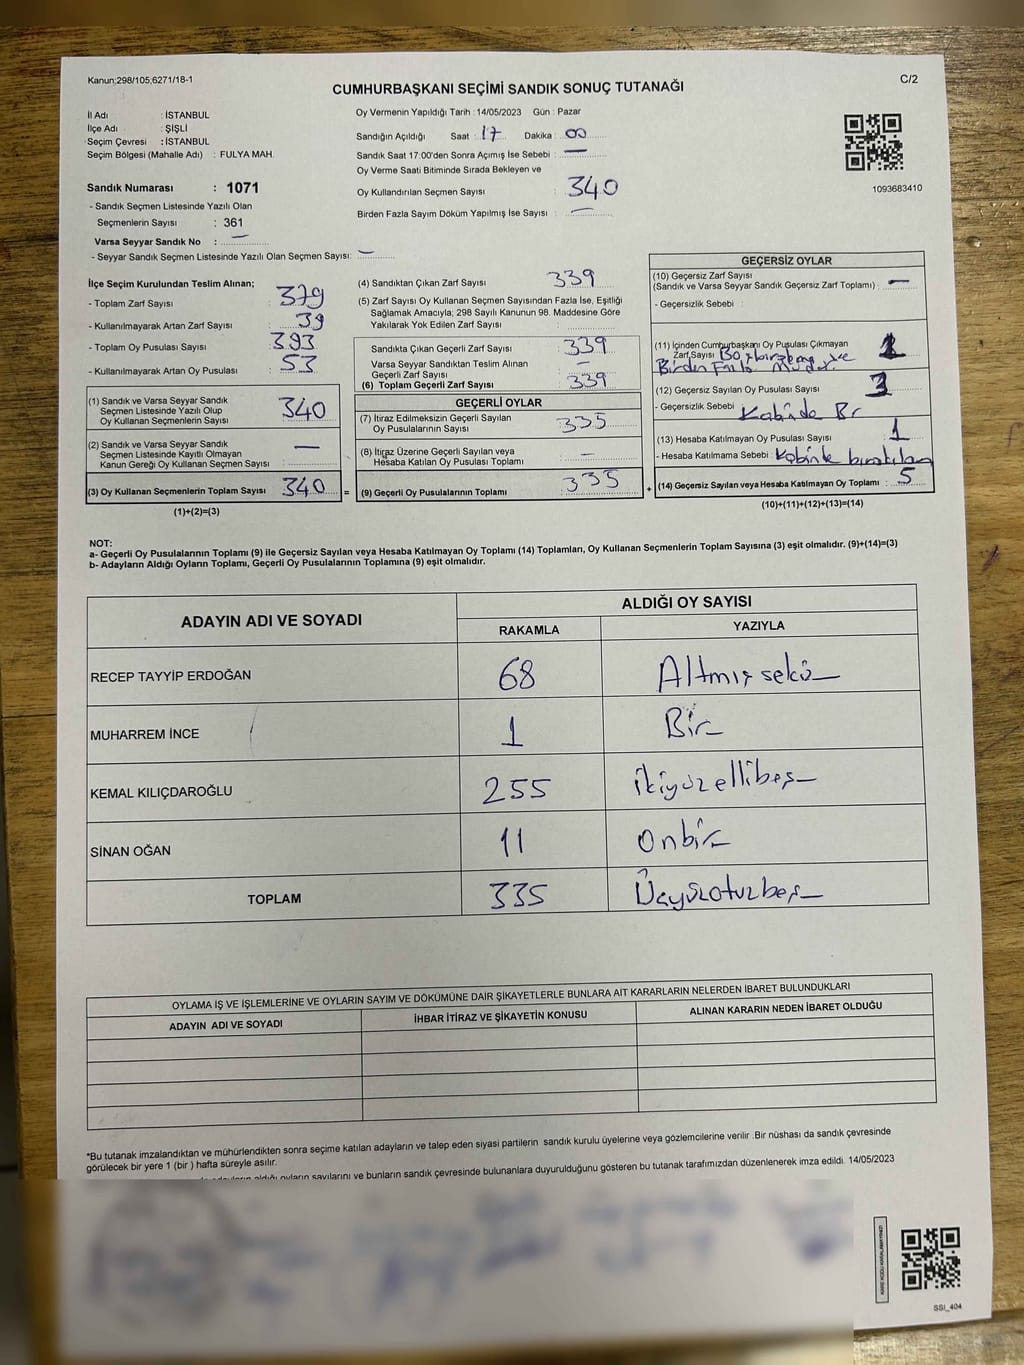 Kanun;298/105;6271/18-1
C/2
CUMHURBAŞKANI SEÇİMİ SANDIK SONUÇ TUTANAĞI
İl Adı : İSTANBUL
İlçe Adı : ŞİŞLİ
Seçim Çevresi : İSTANBUL
Seçim Bölgesi (Mahalle Adı) : FULYA MAH.
Sandık Numarası : 1071
- Sandık Seçmen Listesinde Yazılı Olan
Seçmenlerin Sayısı : 361
Varsa Seyyar Sandık No : —
- Seyyar Sandık Seçmen Listesinde Yazılı Olan Seçmen Sayısı: —
Oy Vermenin Yapıldığı Tarih : 14/05/2023 Gün : Pazar
Sandığın Açıldığı Saat : 17 Dakika : 00
Sandık Saat 17:00'den Sonra Açımış İse Sebebi : —
Oy Verme Saati Bitiminde Sırada Bekleyen ve
Oy Kullandırılan Seçmen Sayısı : 340
Birden Fazla Sayım Döküm Yapılmış İse Sayısı : —
1093683410
İlçe Seçim Kurulundan Teslim Alınan;
- Toplam Zarf Sayısı : 379
- Kullanılmayarak Artan Zarf Sayısı : 39
- Toplam Oy Pusulası Sayısı : 393
- Kullanılmayarak Artan Oy Pusulası : 53
(1) Sandık ve Varsa Seyyar Sandık
Seçmen Listesinde Yazılı Olup
Oy Kullanan Seçmenlerin Sayısı : 340
(2) Sandık ve Varsa Seyyar Sandık
Seçmen Listesinde Kayıtlı Olmayan
Kanun Gereği Oy Kullanan Seçmen Sayısı : —
(3) Oy Kullanan Seçmenlerin Toplam Sayısı : 340 =
(1)+(2)=(3)
(4) Sandıktan Çıkan Zarf Sayısı : 339
(5) Zarf Sayısı Oy Kullanan Seçmen Sayısından Fazla İse, Eşitliği
Sağlamak Amacıyla; 298 Sayılı Kanunun 98. Maddesine Göre
Yakılarak Yok Edilen Zarf Sayısı :
Sandıkta Çıkan Geçerli Zarf Sayısı : 339
Varsa Seyyar Sandıktan Teslim Alınan
Geçerli Zarf Sayısı : —
(6) Toplam Geçerli Zarf Sayısı : 339
GEÇERLİ OYLAR
(7) İtiraz Edilmeksizin Geçerli Sayılan
Oy Pusulalarının Sayısı : 335
(8) İtiraz Üzerine Geçerli Sayılan veya
Hesaba Katılan Oy Pusulası Toplamı : —
(9) Geçerli Oy Pusulalarının Toplamı : 335 +
GEÇERSİZ OYLAR
(10) Geçersiz Zarf Sayısı
(Sandık ve Varsa Seyyar Sandık Geçersiz Zarf Toplamı) : —
- Geçersizlik Sebebi :
(11) İçinden Cumhurbaşkanı Oy Pusulası Çıkmayan
Zarf Sayısı : 1
Birden Fazla
(12) Geçersiz Sayılan Oy Pusulası Sayısı : 3
- Geçersizlik Sebebi :
(13) Hesaba Katılmayan Oy Pusulası Sayısı : 1
- Hesaba Katılmama Sebebi : Kabinde bırakılan
(14) Geçersiz Sayılan veya Hesaba Katılmayan Oy Toplamı : 5
(10)+(11)+(12)+(13)=(14)
NOT:
a- Geçerli Oy Pusulalarının Toplamı (9) ile Geçersiz Sayılan veya Hesaba Katılmayan Oy Toplamı (14) Toplamları, Oy Kullanan Seçmenlerin Toplam Sayısına (3) eşit olmalıdır. (9)+(14)=(3)
b- Adayların Aldığı Oyların Toplamı, Geçerli Oy Pusulalarının Toplamına (9) eşit olmalıdır.
ADAYIN ADI VE SOYADI
ALDIĞI OY SAYISI
RAKAMLA YAZIYLA
RECEP TAYYİP ERDOĞAN 68 Altmış sekiz
MUHARREM İNCE 1 Bir
KEMAL KILIÇDAROĞLU 255 ikiyüzellibeş
SİNAN OĞAN 11 onbir
TOPLAM 335 Üçyüzotuzbeş
OYLAMA İŞ VE İŞLEMLERİNE VE OYLARIN SAYIM VE DÖKÜMÜNE DAİR ŞİKAYETLERLE BUNLARA AİT KARARLARIN NELERDEN İBARET BULUNDUKLARI
ADAYIN ADI VE SOYADI İHBAR İTİRAZ VE ŞİKAYETİN KONUSU ALINAN KARARIN NEDEN İBARET OLDUĞU
*Bu tutanak imzalandıktan ve mühürlendikten sonra seçime katılan adayların ve talep eden siyasi partilerin sandık kurulu üyelerine veya gözlemcilerine verilir .Bir nüshası da sandık çevresinde
görülecek bir yere 1 (bir ) hafta süreyle asılır.
aldığı oyların sayılarını ve bunların sandık çevresinde bulunanlara duyurulduğunu gösteren bu tutanak tarafımızdan düzenlenerek imza edildi. 14/05/2023
SSI_404